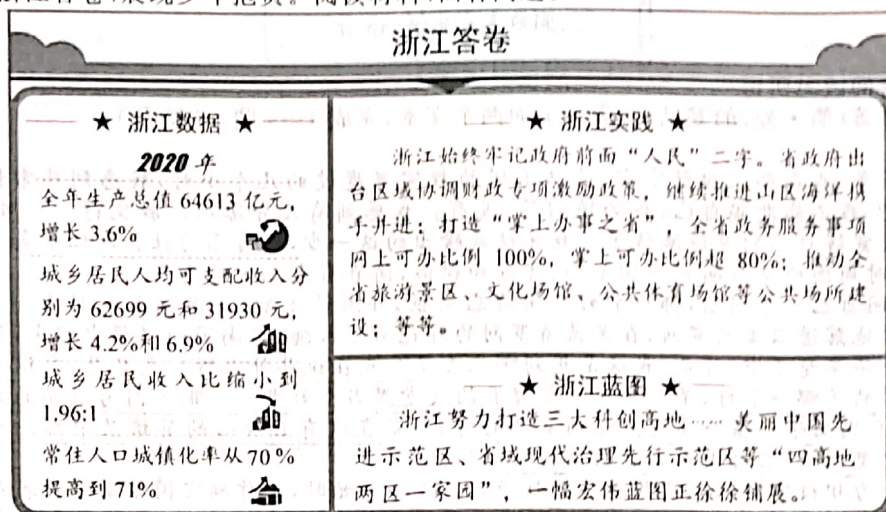 浙江答卷
★ 浙江数据 ★
2020 年
全年生产总值 64613 亿元，
增长 3.6%
城乡居民人均可支配收入分
别为 62699 元和 31930 元，
增长 4.2%和 6.9%
城乡居民收入比缩小到
1.96:1
常住人口城镇化率从 70%
提高到 71%
★ 浙江实践 ★
浙江始终牢记政府前面“人民”二字。省政府出
台区域协调财政专项激励政策，继续推进山区海洋携
手并进；打造“掌上办事之省”，全省政务服务事项
网上可办比例 100%，掌上可办比例超 80%；推动全
省旅游景区、文化场馆、公共体育场馆等公共场所建
设；等等。
★ 浙江蓝图 ★
浙江努力打造三大科创高地……美丽中国先
进示范区、省域现代治理先行示范区等“四高地
两区一家园”，一幅宏伟蓝图正徐徐铺展。